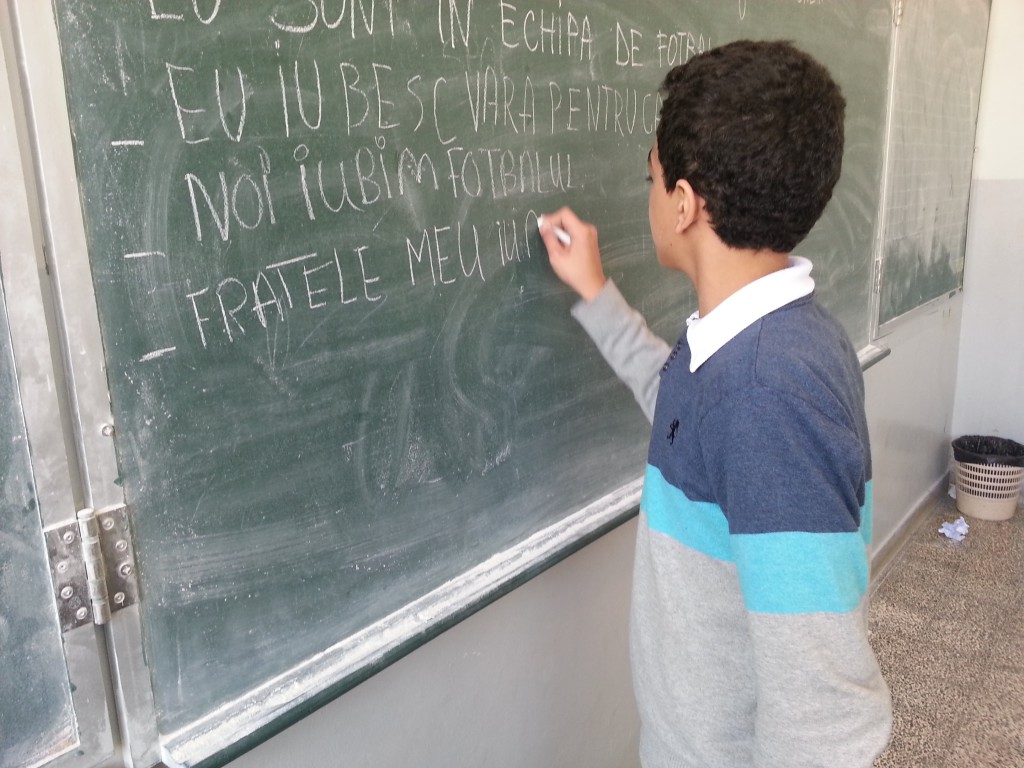 EU SUNT IN ECHIPA DE FOTBAL
EU IUBESC VARA PENTRU CA
NOI IUBIM FOTBALUL
FRATELE MEU IUB